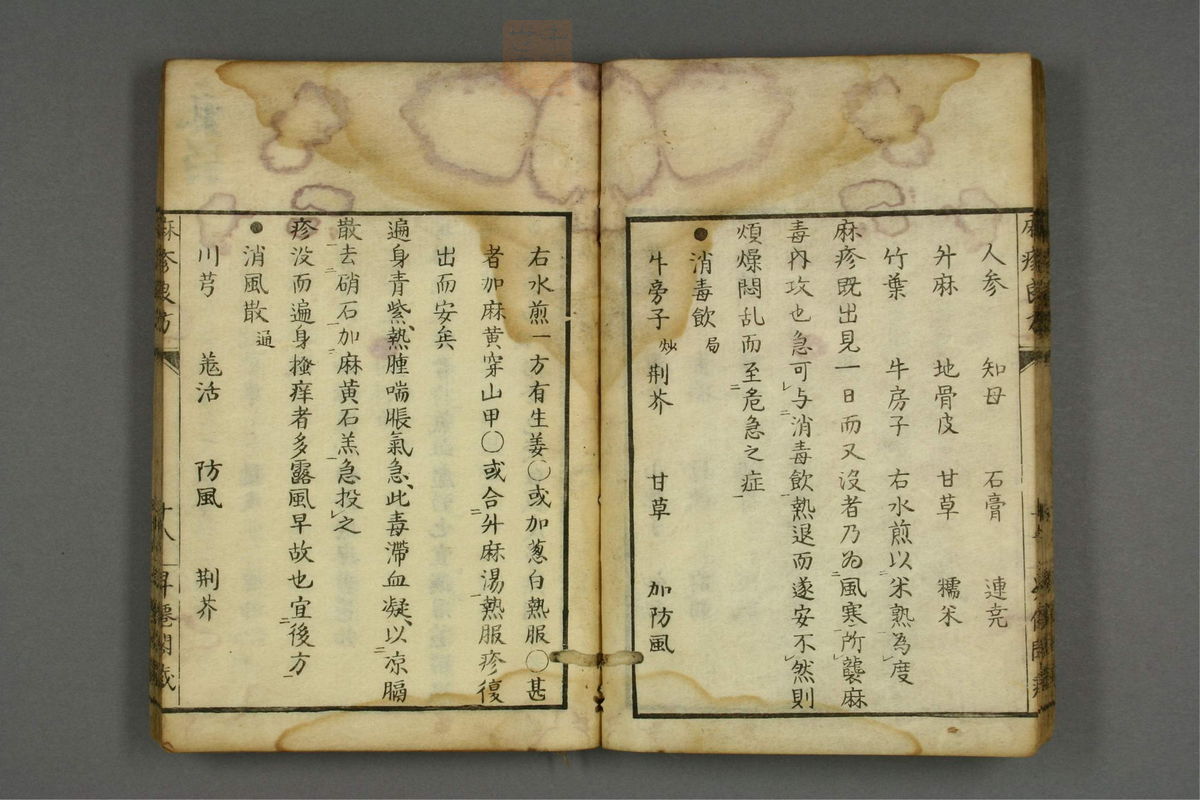 人参 知母 石膏 連壳
升麻 地骨皮 甘草 糯米
竹葉 牛房子 右水煎以米熟為度
麻疹既出見一日而又没者乃為風寒所襲麻
毒内攻也急可与消毒飲熱退而遂安不然則
煩燥悶乱而至危急之症
●消毒飲 局
牛旁子 炒 荆芥 甘草 加防風
右水煎一方有生姜〇或加葱白熟服〇甚
者加麻黄穿山甲〇或合升麻湯熱服疹復
出而安矣
遍身青紫熱腫喘脹氣急此毒滯血凝以凉膈
散去硝石加麻黄石羔急投之
疹没而遍身搔痒者多露風早故也宜後方
●消風散 通
川芎 羗活 防風 荆芥
麻疹良方